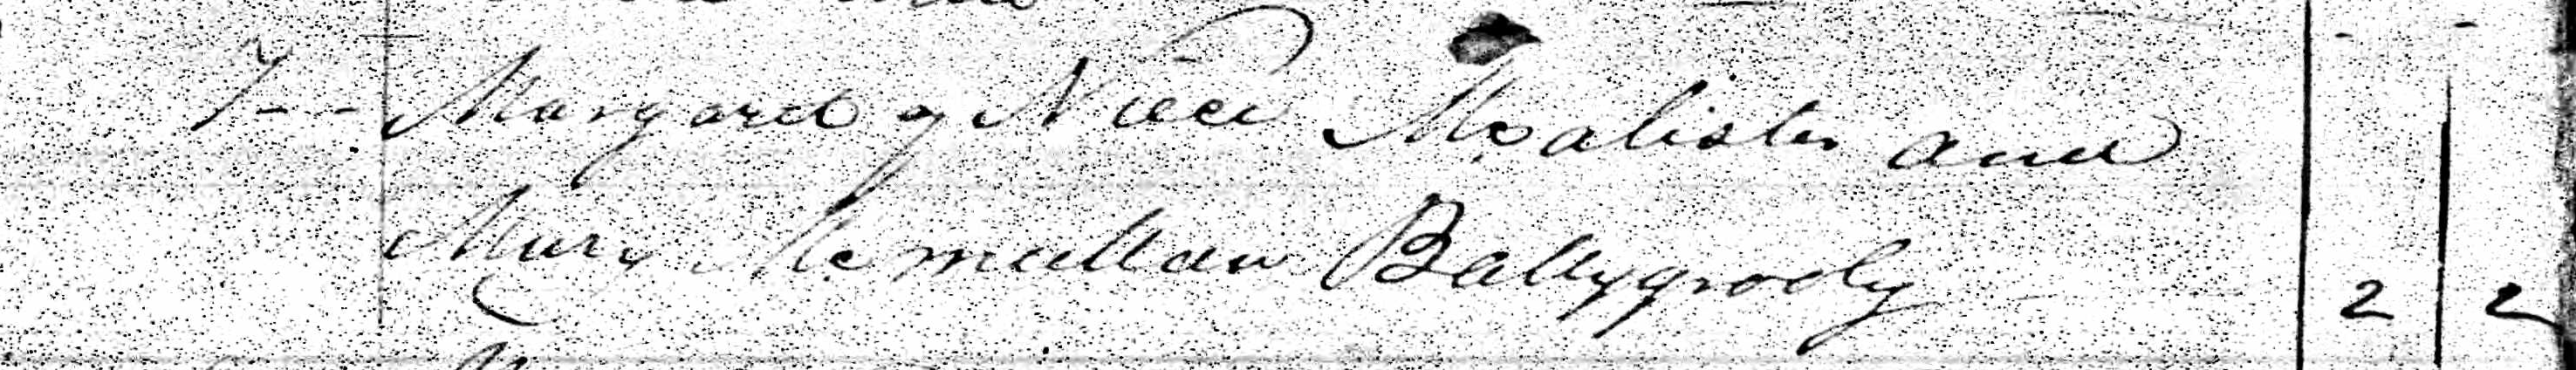 7 - - Margaret of Niece Mcalister and
Mary Mcmullan Ballygrooby 2 2